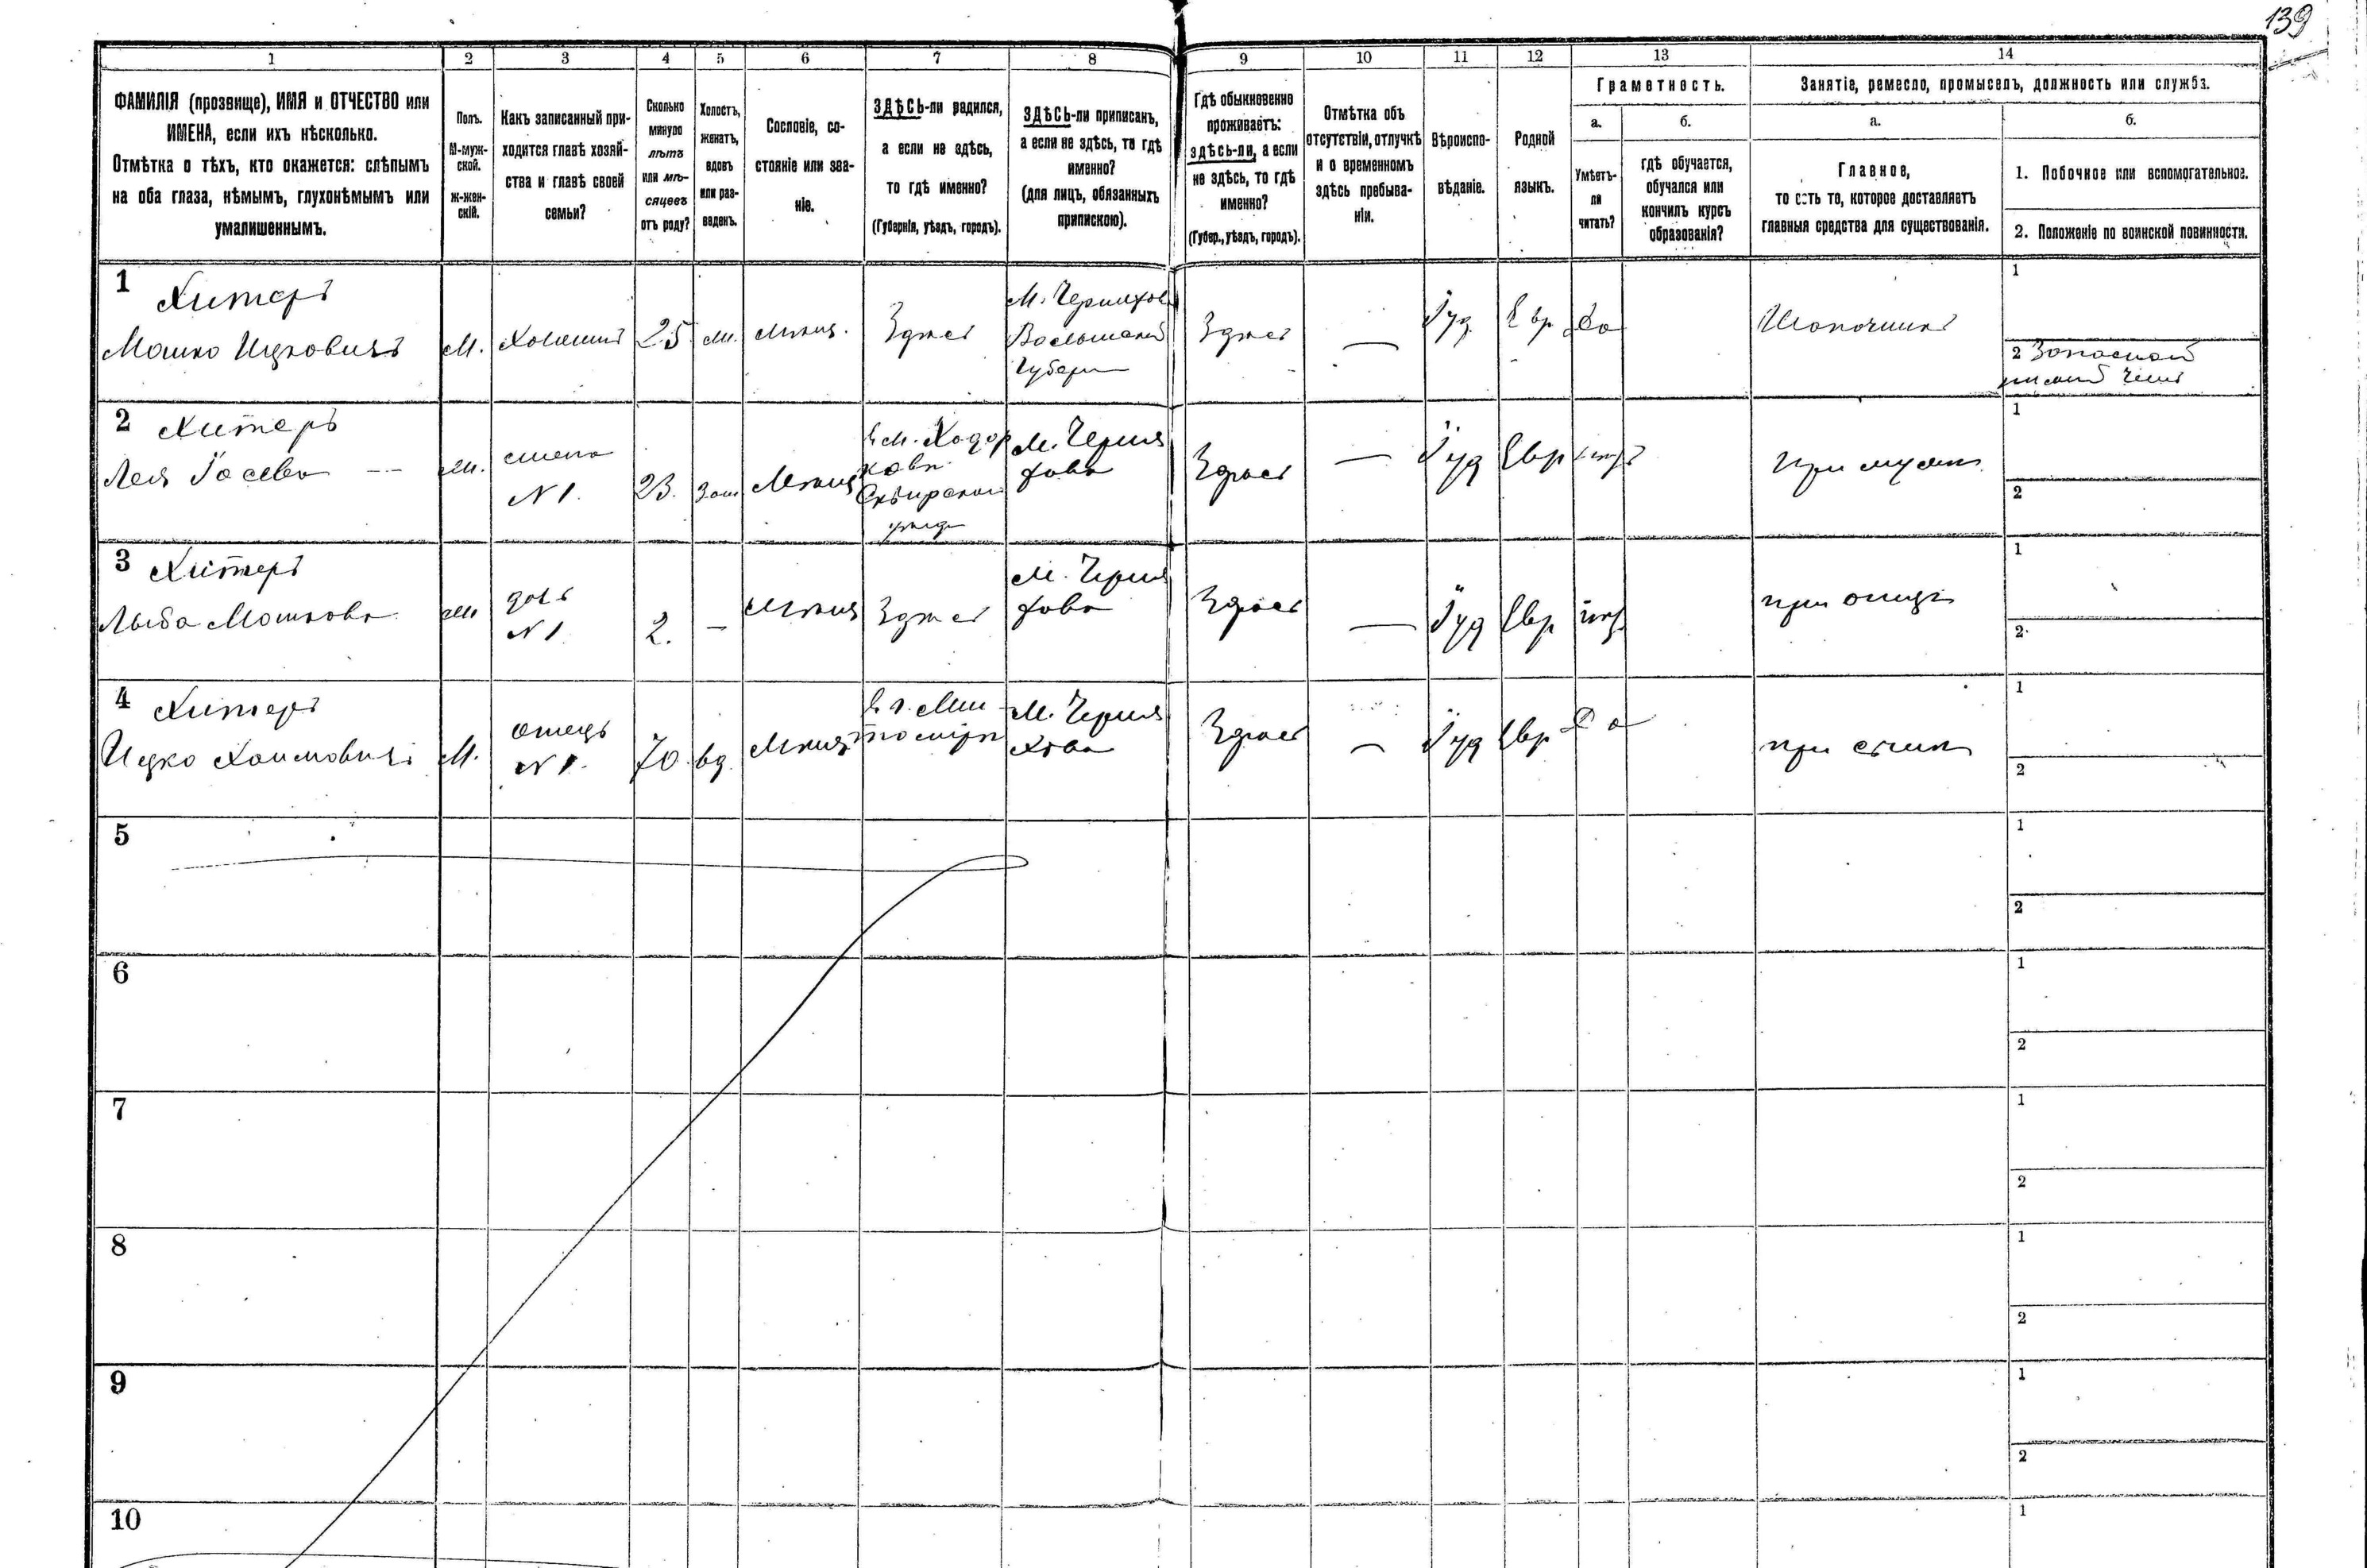 139
1
2
3
4
5
6
7
8
9
10
11
12
13
14
ФАМИЛІЯ (прозвище), ИМЯ и ОТЧЕСТВО или
ИМЕНА, если ихъ нѣсколько.
Отмѣтка о тѣхъ, кто окажется: слѣпымъ
на оба глаза, нѣмымъ, глухонѣмымъ или
умалишеннымъ.
Полъ.
М-муж-
ской.
ж-жен-
скій.
Какъ записанный при-
ходится главѣ хозяй-
ства и главѣ своей
семьи?
Сколько
минуло
лѣтъ
или мѣ-
сяцевъ
отъ роду?
Холостъ,
женатъ,
вдовъ
или раз-
веденъ.
Сословіе, со-
стояніе или зва-
ніе.
ЗДѢСЬ-ли родился,
а если не здѣсь,
то гдѣ именно?
(Губернія, уѣздъ, городъ).
ЗДѢСЬ-ли приписанъ,
а если не здѣсь, то гдѣ
именно?
(для лицъ, обязанныхъ
припискою).
Гдѣ обыкновенно
проживаетъ:
здѣсь-ли, а если
не здѣсь, то гдѣ
именно?
(Губер., уѣздъ, городъ).
Отмѣтка объ
отсутствіи, отлучкѣ
и о временномъ
здѣсь пребыва-
ніи.
Вѣроиспо-
вѣданіе.
Родной
языкъ.
Грамотность.
а.
Умѣетъ-
ли
читать?
б.
гдѣ обучается,
обучался или
кончилъ курсъ
образованія?
Занятіе, ремесло, промыселъ, должность или служба.
а.
Главное,
то есть то, которое доставляетъ
главныя средства для существованія.
б.
1. Побочное или вспомогательное.
2. Положеніе по воинской повинности.
1 Хитеръ
Мошко Ицковичъ
М.
Хозяинъ
25
Здѣсь
М. Черняхов
Волынской
Губерн
Здѣсь
—
Іуд
Евр
да
Шапочникъ
1
2
2 Хитеръ
Лея
жена
N 1.
23.
Зам
Мѣщ
в м. Ходор
кови
Сквирскаго
М. Черня
хова
Здѣсь
—
Іуд
Евр
при мужѣ
1
2
3 Хитеръ
Мошкова
дочь
N 1
2.
—
Мѣщ
Здѣсь
М. Черня
хова
Здѣсь
—
Іуд
Евр
при отцѣ
1
2
4 Хитеръ
Ицко Хаимовичъ
М.
отецъ
N 1.
70.
вд.
Мѣщ
в г. Жи
томірѣ
М. Черня
хова
Здѣсь
—
Іуд
Евр
да
при сынѣ
1
2
5
1
2
6
1
2
7
1
2
8
1
2
9
1
2
10
1